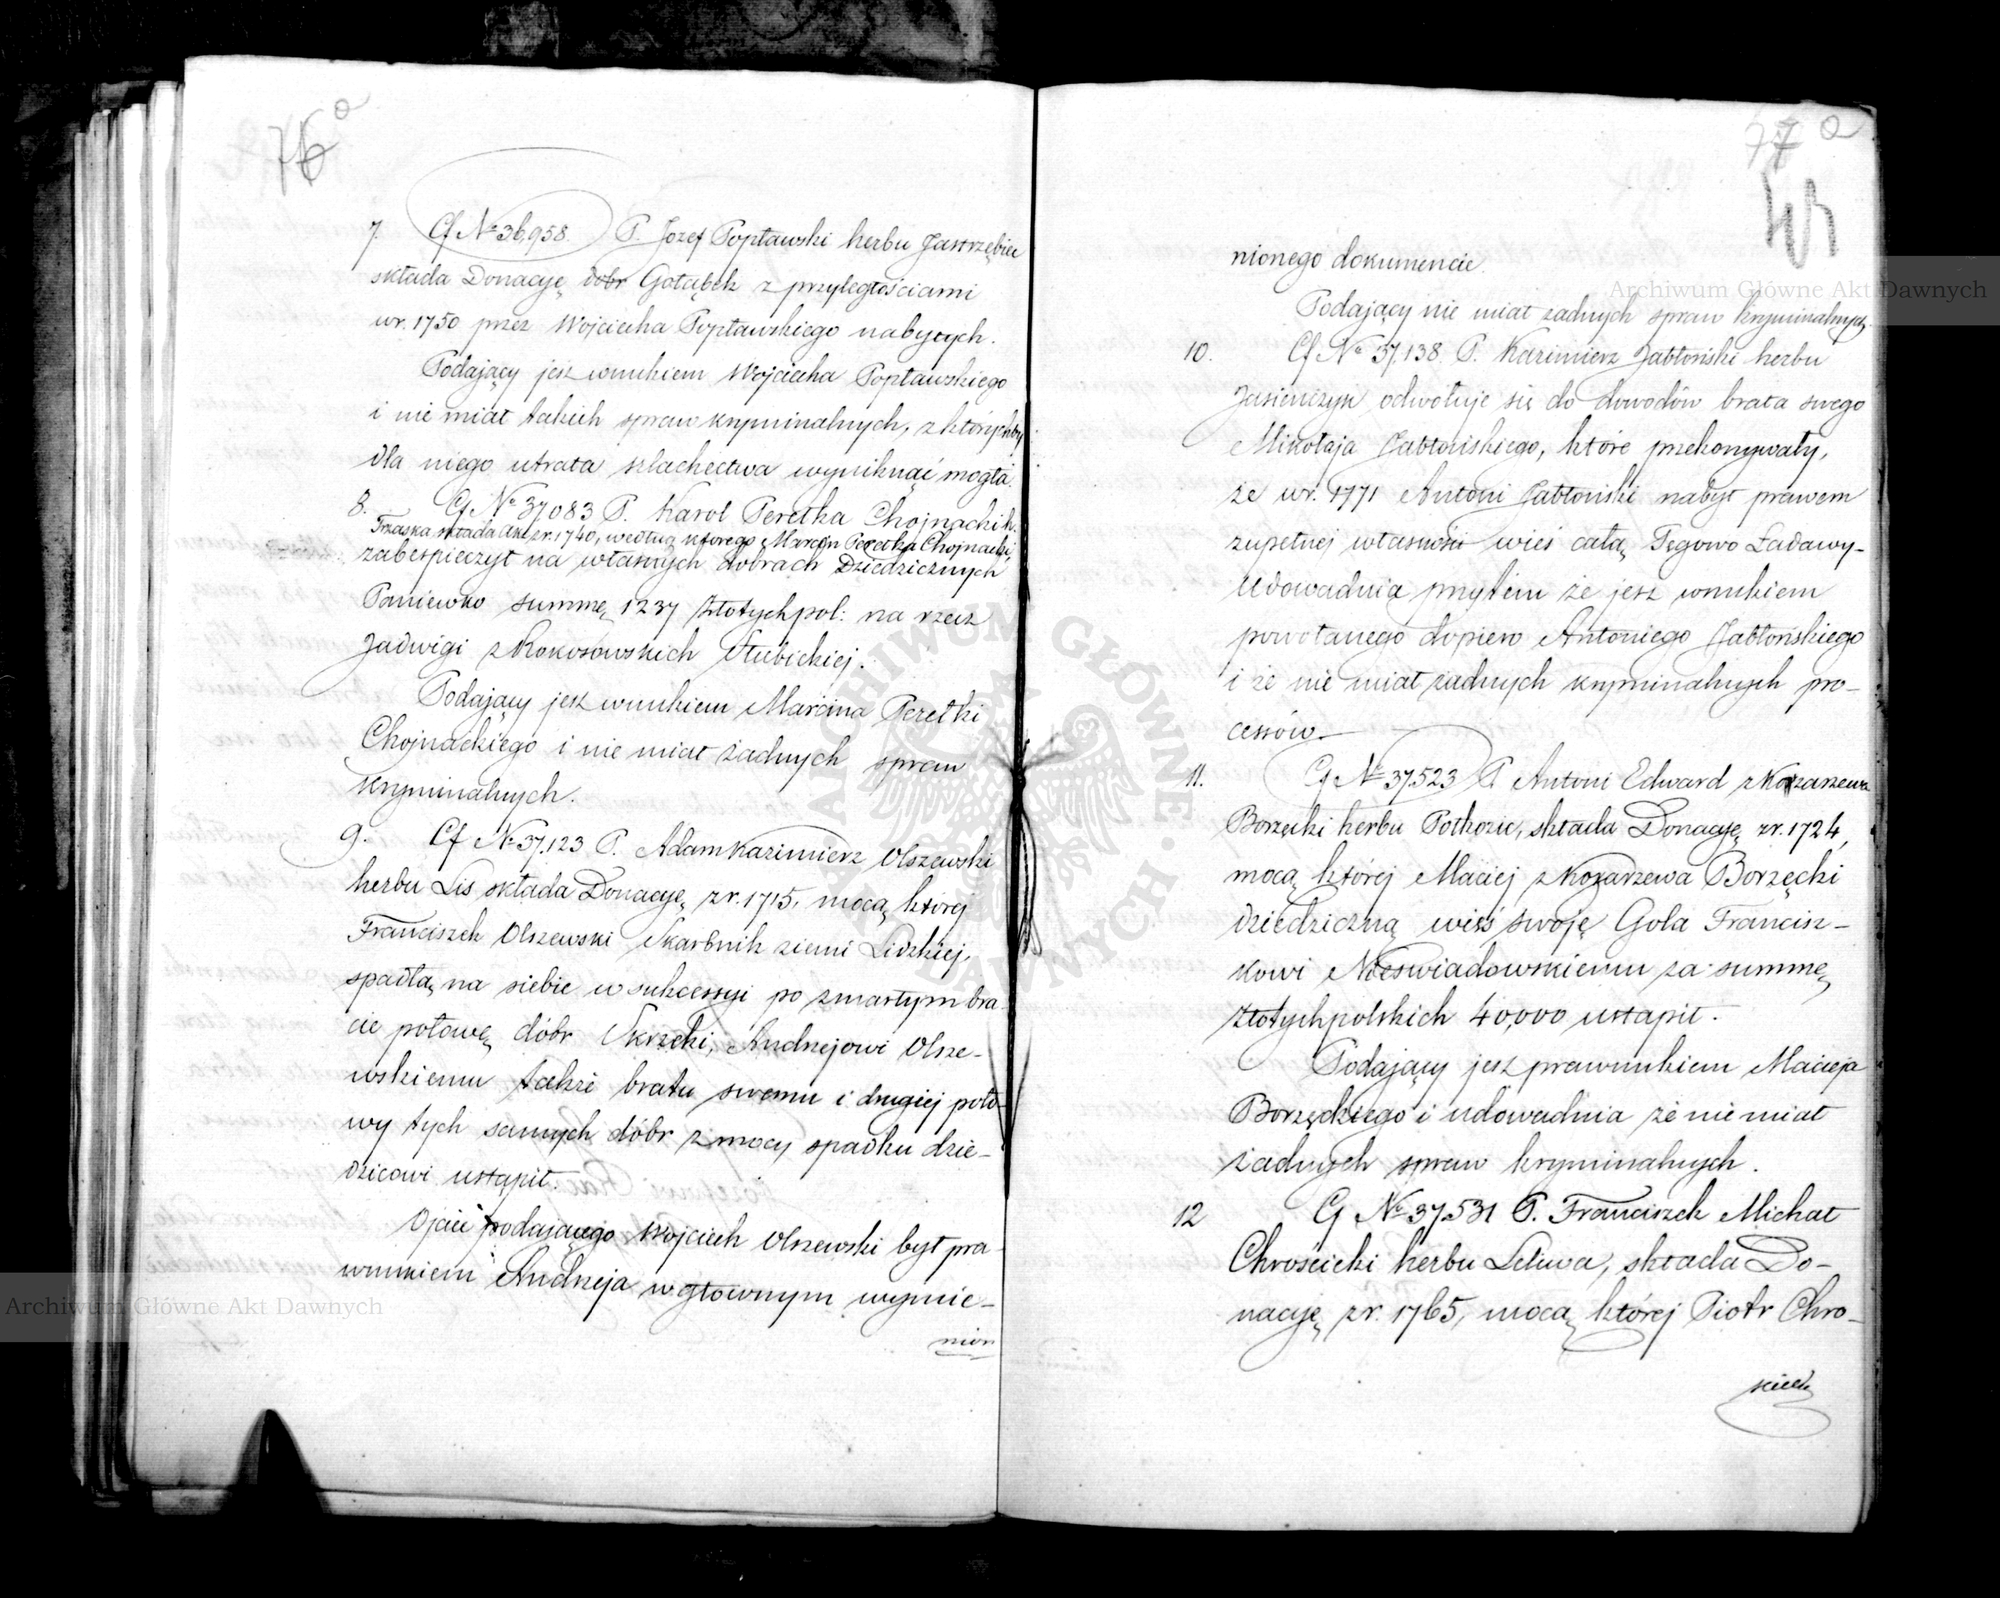 76 a
7. Cf № 36,958. P. Jozef Popławski herbu Jastrzębiec
składa Donacyę dobr Gołąbek z przyległościami
w r. 1750 przez Wojciecha Popławskiego nabytych.
Podający jest wnukiem Wojciecha Popławskiego
i nie miał takich spraw kryminalnych, z którychby
dla niego utrata szlachectwa wyniknąć mogła.
8. Cf № 37,083 P. Karol Peretka Chojnacki h.
Trzaska składa Akt z r. 1740, według którego Marcin Peretka Chojnacki
zabespieczył na własnych dobrach Dziedzicznych
Paniewko summę 1237 złotych pol: na rzecz
Jadwigi z Rokosowskich Słubickiej.
Podający jest wnukiem Marcina Peretki
Chojnackiego i nie miał żadnych spraw
kryminalnych.
9. Cf № 37,123 P. Adam Kazimierz Olszewski
herbu Lis składa Donacyę z r. 1715, mocą której
Franciszek Olszewski Skarbnik ziemi Lidzkiej,
spadłą na siebie w sukcessyi po zmarłym bra-
cie połowę dóbr Skrzeki, Andrzejowi Olsze-
wskiemu także bratu swemu i drugiej poło-
wy tych samych dóbr z mocy spadku dzie-
dzicowi ustąpił.
Ojciec podającego Wojciech Olszewski był pra-
wnukiem Andrzeja w głownym wymie-
nion
77 a
nionego dokumencie.
Podający nie miał żadnych spraw kryminalnych
10. Cf № 37,138 P. Kazimierz Jabłoński herbu
Jasieńczyk odwołuje się do dowodów brata swego
Mikołaja Jabłońskiego, które przekonywały,
że w r. 1771 Antoni Jabłoński nabył prawem
zupełnej własności wieś całą Tęgowo Ładawy-
Udowadnia przytém że jest wnukiem
powołanego dopiero Antoniego Jabłońskiego
i że nie miał żadnych kryminalnych pro-
cessów.
11. Cf № 37,523 P. Antoni Edward z Kozarzewa
Borzęcki herbu Pułkozic, składa Donacyę z r. 1724,
mocą której Maciej z Kozarzewa Borzęcki
dziedziczną wieś swoję Gola Francisz-
kowi Nieświadowskiemu za summę
złotych polskich 40,000 ustąpił.
Podający jest prawnukiem Macieja
Borzęckiego i udowadnia że nie miał
żadnych spraw kryminalnych.
12 Cf № 37,531 P. Franciszek Michał
Chrościcki herbu Leliwa, składa Do-
nacyę z r. 1765, mocą której Piotr Chro-
Archiwum Główne Akt Dawnych
Archiwum Główne Akt Dawnych
ARCHIWUM GŁÓWNE AKT DAWNYCH